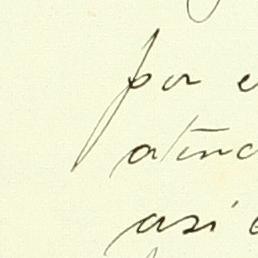 por e
atenc
asi